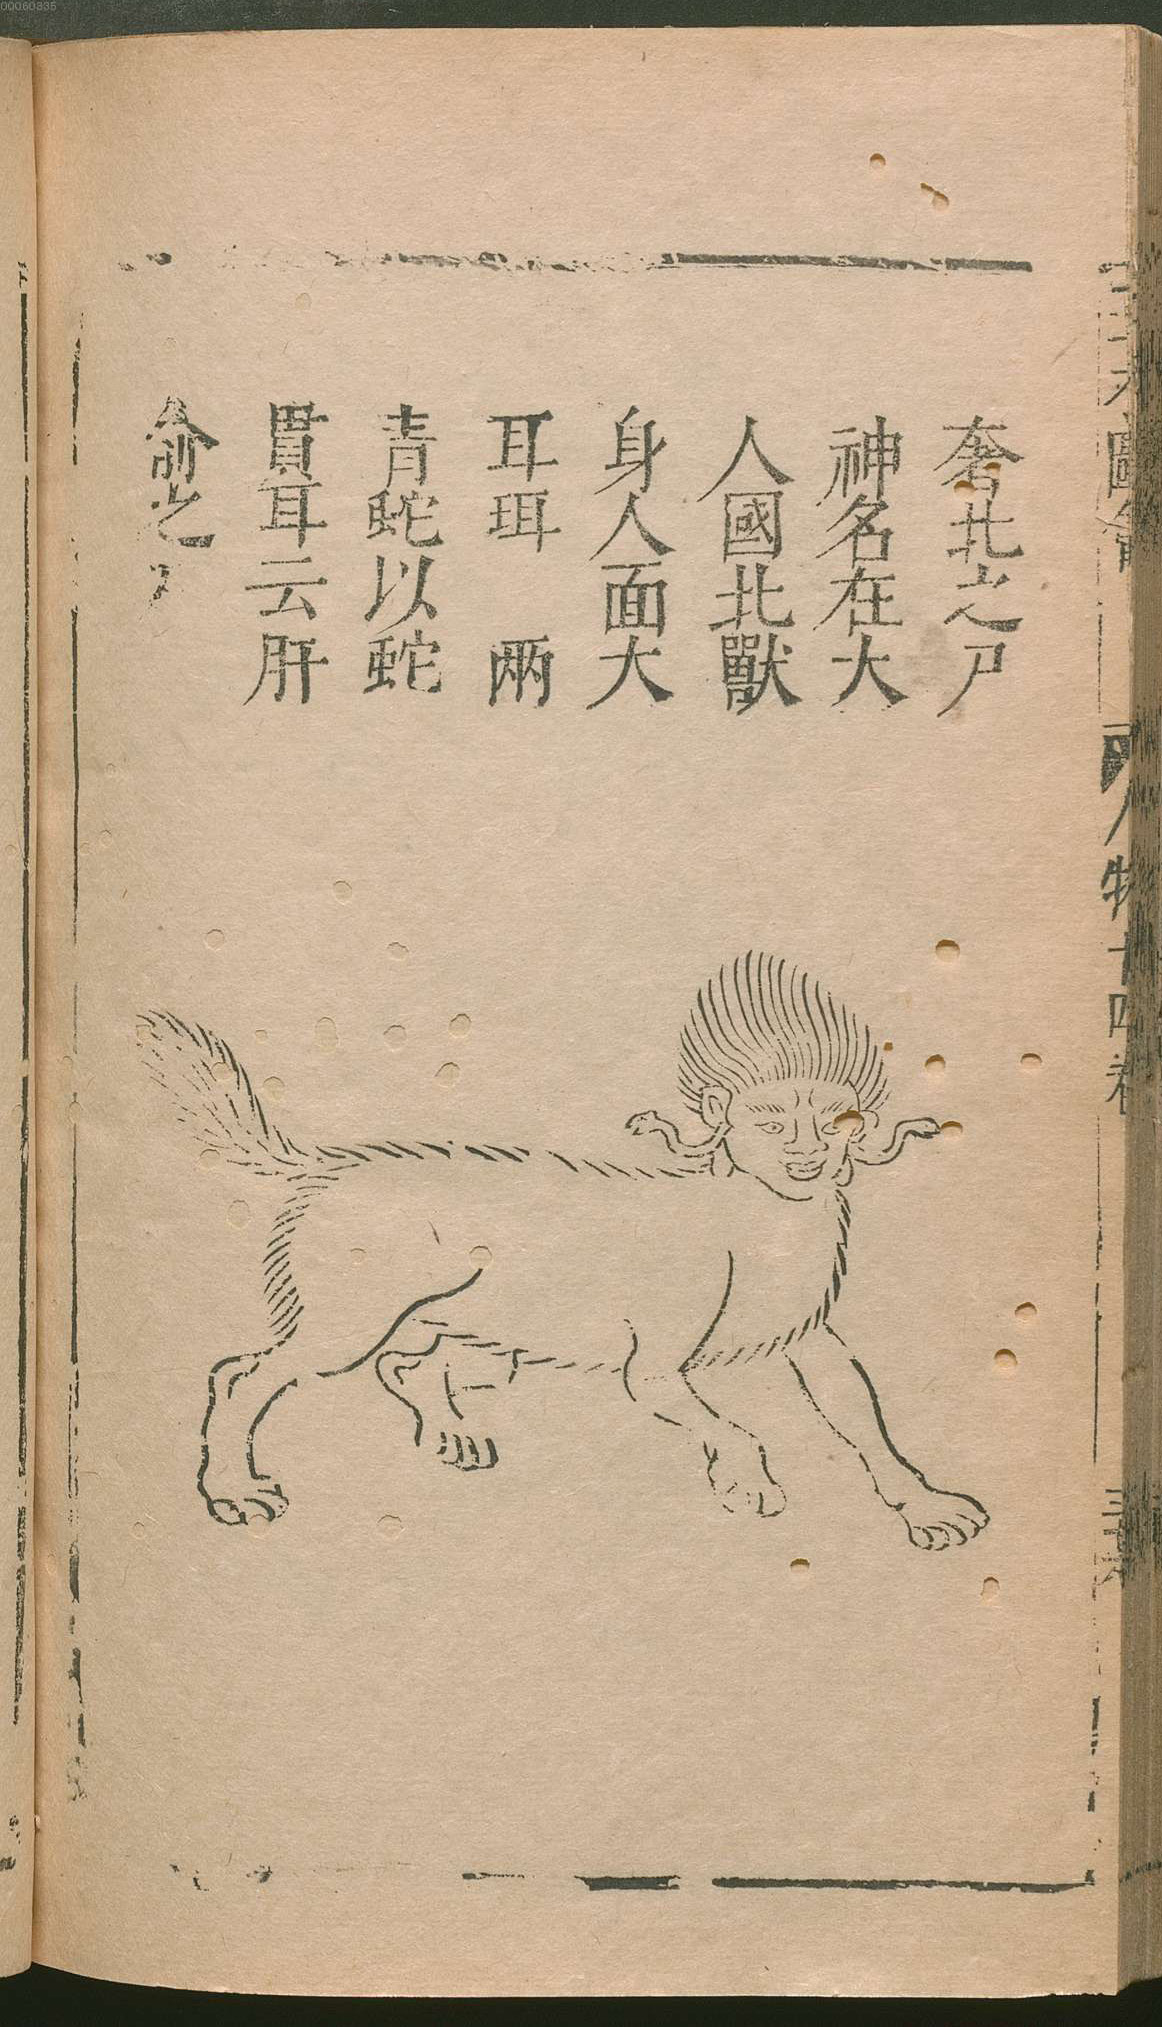 奢北之尸
神名在大
人國北獸
身人面大
耳珥 兩
青蛇以蛇
貫耳云肝
俞之尸
人物十四卷
00060835